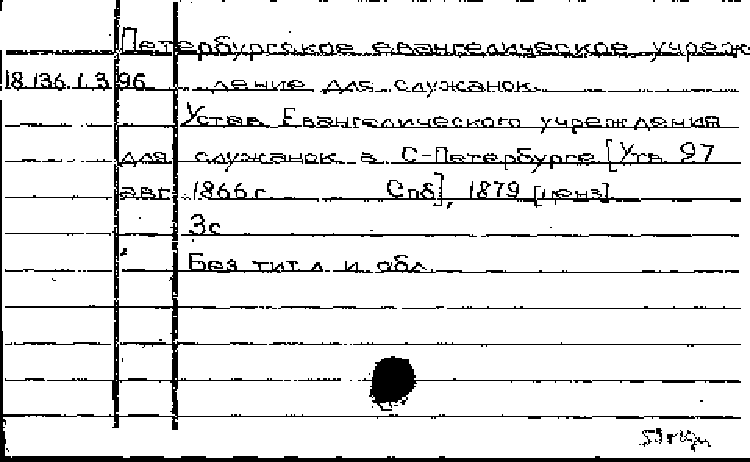 Петербургское евангелическое учреж-
18.136.1.396 дение для служанок.
Устав Евангелического учреждения
для служанок в С-Петербурге [Утв. 97
авг. 1866 г. Спб], 1879 [ценз].
3с
Без тит. л. и обл.